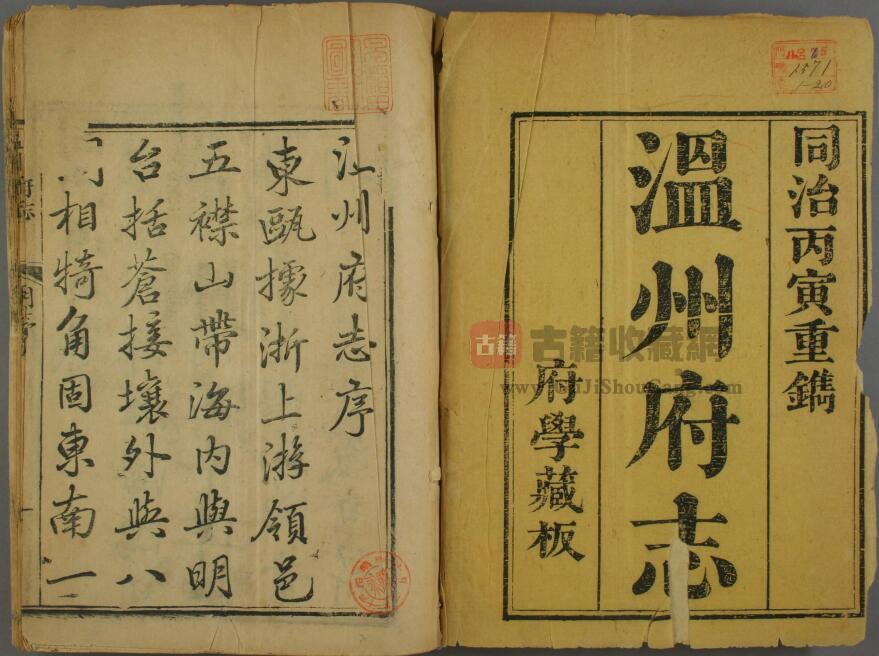 同治丙寅重鐫
溫州府志
府學藏板
州府志序
東甌據浙上游領邑
五襟山帶海內與明
台括蒼接壤外與八
相犄角固東南一
府志
古籍
古籍收藏網
1571
1-20